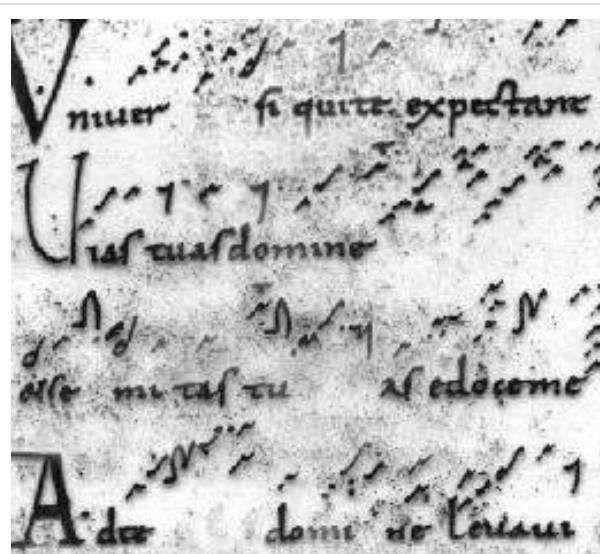 Vniuer si qui te expectant
Uias tuas domine
et se mi tas tu as edoceme
Adte domi ne leuaui